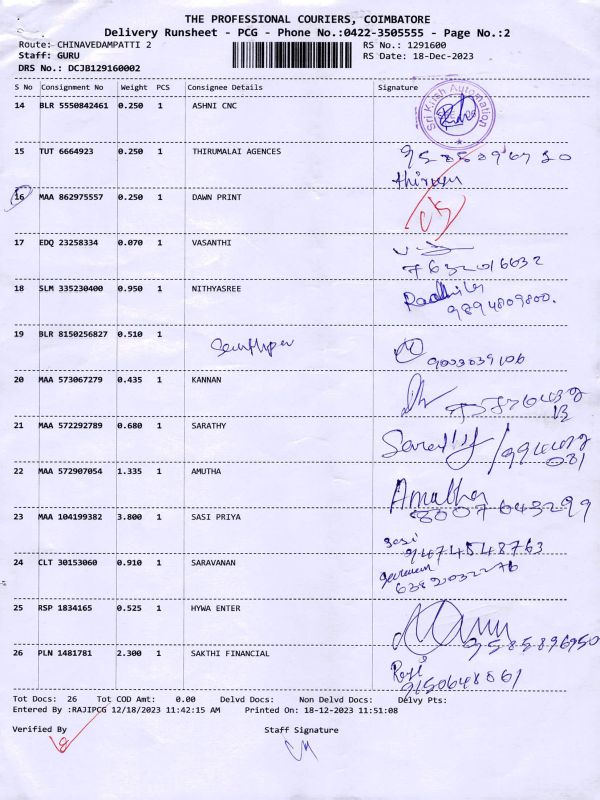 THE PROFESSIONAL COURIERS, COIMBATORE
Delivery Runsheet - PCG - Phone No.:0422-3505555 - Page No.:2
Route: CHINAVEDAMPATTI 2 RS No.: 1291600
Staff: GURU RS Date: 18-Dec-2023
DRS No.: DCJB129160002
S No Consignment No Weight PCS Consignee Details Signature
14 BLR 5550842461 0.250 1 ASHNI CNC Sri Krish Automation
15 TUT 6664923 0.250 1 THIRUMALAI AGENCES
16 MAA 862975557 0.250 1 DAWN PRINT
17 EDQ 23258334 0.070 1 VASANTHI
7632016632
18 SLM 335230400 0.950 1 NITHYASREE
9894809800.
19 BLR 8150256827 0.510 1
9003039106
20 MAA 573067279 0.435 1 KANNAN
21 MAA 572292789 0.680 1 SARATHY
22 MAA 572907054 1.335 1 AMUTHA Amutha
8007643299
23 MAA 104199382 3.800 1 SASI PRIYA Sasi
24 CLT 30153060 0.910 1 SARAVANAN
25 RSP 1834165 0.525 1 HYWA ENTER
9585896950
26 PLN 1481781 2.300 1 SAKTHI FINANCIAL
9150648861
Tot Docs: 26 Tot COD Amt: 0.00 Delvd Docs: Non Delvd Docs: Delvy Pts:
Entered By :RAJIPCG 12/18/2023 11:42:15 AM Printed On: 18-12-2023 11:51:08
Verified By Staff Signature